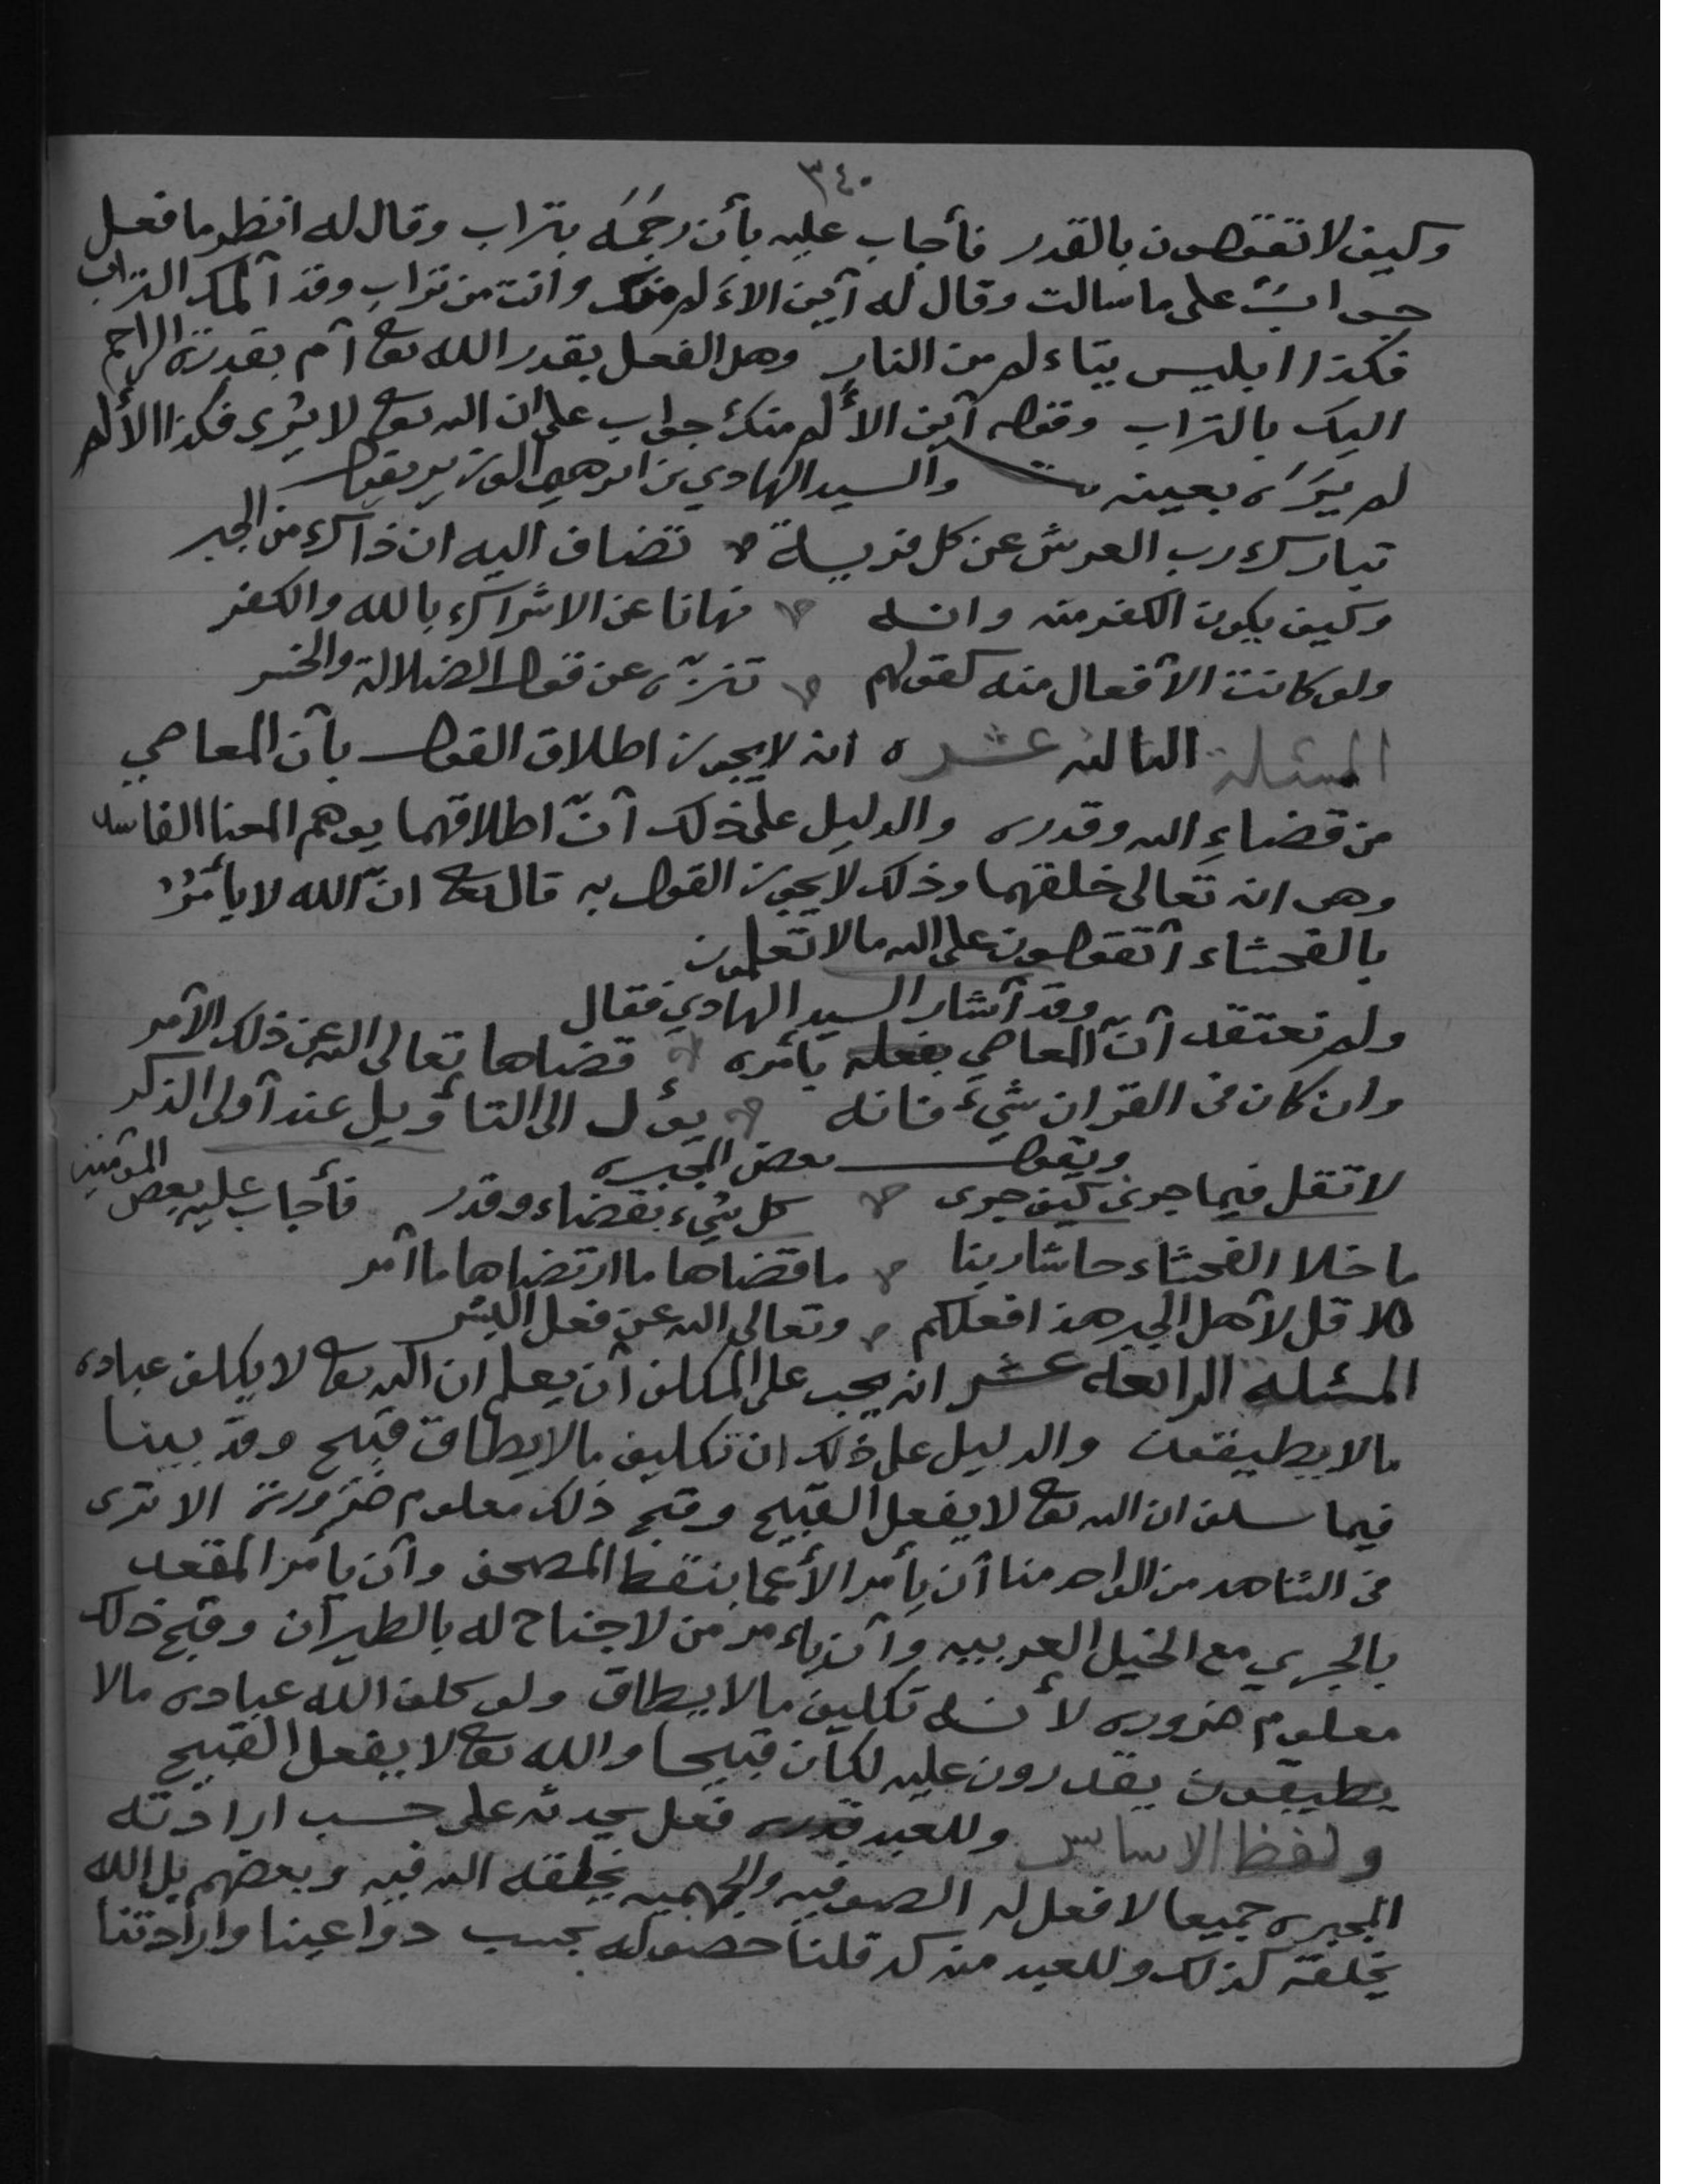 ٣٤٠
وكيف لا تقولون بالقدر فأجاب عليه بأن رجمه بتراب وقال له انظر ما فعل
جواب على ما سالت وقال له أين الاءلم منك وانت من تراب وقد آلمك التراب
فكذا ابليس يتاءلم من النار وهل الفعل بقدر الله تعا أم بقدرة الراجم
اليك بالتراب وقوله أين الألم منك جواب على ان الله تعا لا يرى فكذا الألم
لم يره بعينه والسيد الهادي بن ابرهيم الوزير يقول
تبارك رب العرش عن كل فريسة تضاف اليه ان ذاك من الجبر
وكيف يكون الكفر منه وانه نهانا عن الاشراك بالله والكفر
ولو كانت الأفعال منه كقولهم تنزه عن قول الضلالة والخسر
المسئلة الثالثه عشره انه لا يجوز اطلاق القول بأن المعاصي
من قضاءِ الله وقدره والدليل على ذلك أنّ اطلاقهما يوهم المعنا الفاسد
وهو انه تعالى خلقهما وذلك لا يجوز القول به قال تعا انّ الله لا يأمرُ
بالفحشاء أتقولون على الله ما لا تعلمون
وقد أشار السيد الهادي فقال
ولم نعتقد أنّ المعاصي بأمره قضاها تعالى الله عن ذلك الأمر
وان كان في القران شيء فانه يؤل الى التأويل عند أولى الذكر
ويقول بعض المجبره
لا تقل فيما جرى كيف جرى كل شيء بقضاء وقدر فأجاب عليه بعض المؤمنين
ما خلا الفحشاء حاشا ربنا ما قضاها ما ارتضاها ما أمر
قل لأهل الجبر هذا فعلكم وتعالى الله عن فعل البشر
المسئلة الرابعه عشر انه يجب على المكلف أن يعلم ان الله تعا لا يكلف عباده
ما لا يطيقون والدليل على ذلك ان تكليف ما لا يطاق قبيح وقد بينا
فيما سلف ان الله تعا لا يفعل القبيح وقبح ذلك معلوم ضرورة الا ترى
في الشاهد من الواحد منا أن يأمر الأعما بنقط المصحف وأن يأمر المقعد
بالجري مع الخيل العربيه وأن ياءمر من لا جناح له بالطيرآن وقبح ذلك
معلوم ضروره لأنه تكليف ما لا يطاق ولو كلف الله عباده ما لا
يطيقون يقدرون عليه لكان قبيحا والله تعا لا يفعل القبيح
ولفظ الاساس وللعبد قدره فعل يحدثه على حسب ارادته
المجبره جميعا لا فعل له الصوفيه والجهميه يخلقه الله فيه وبعضهم بل الله
يخلقه كذلك وللعبد منه كسب قلنا حصوله بحسب دواعينا وارادتنا